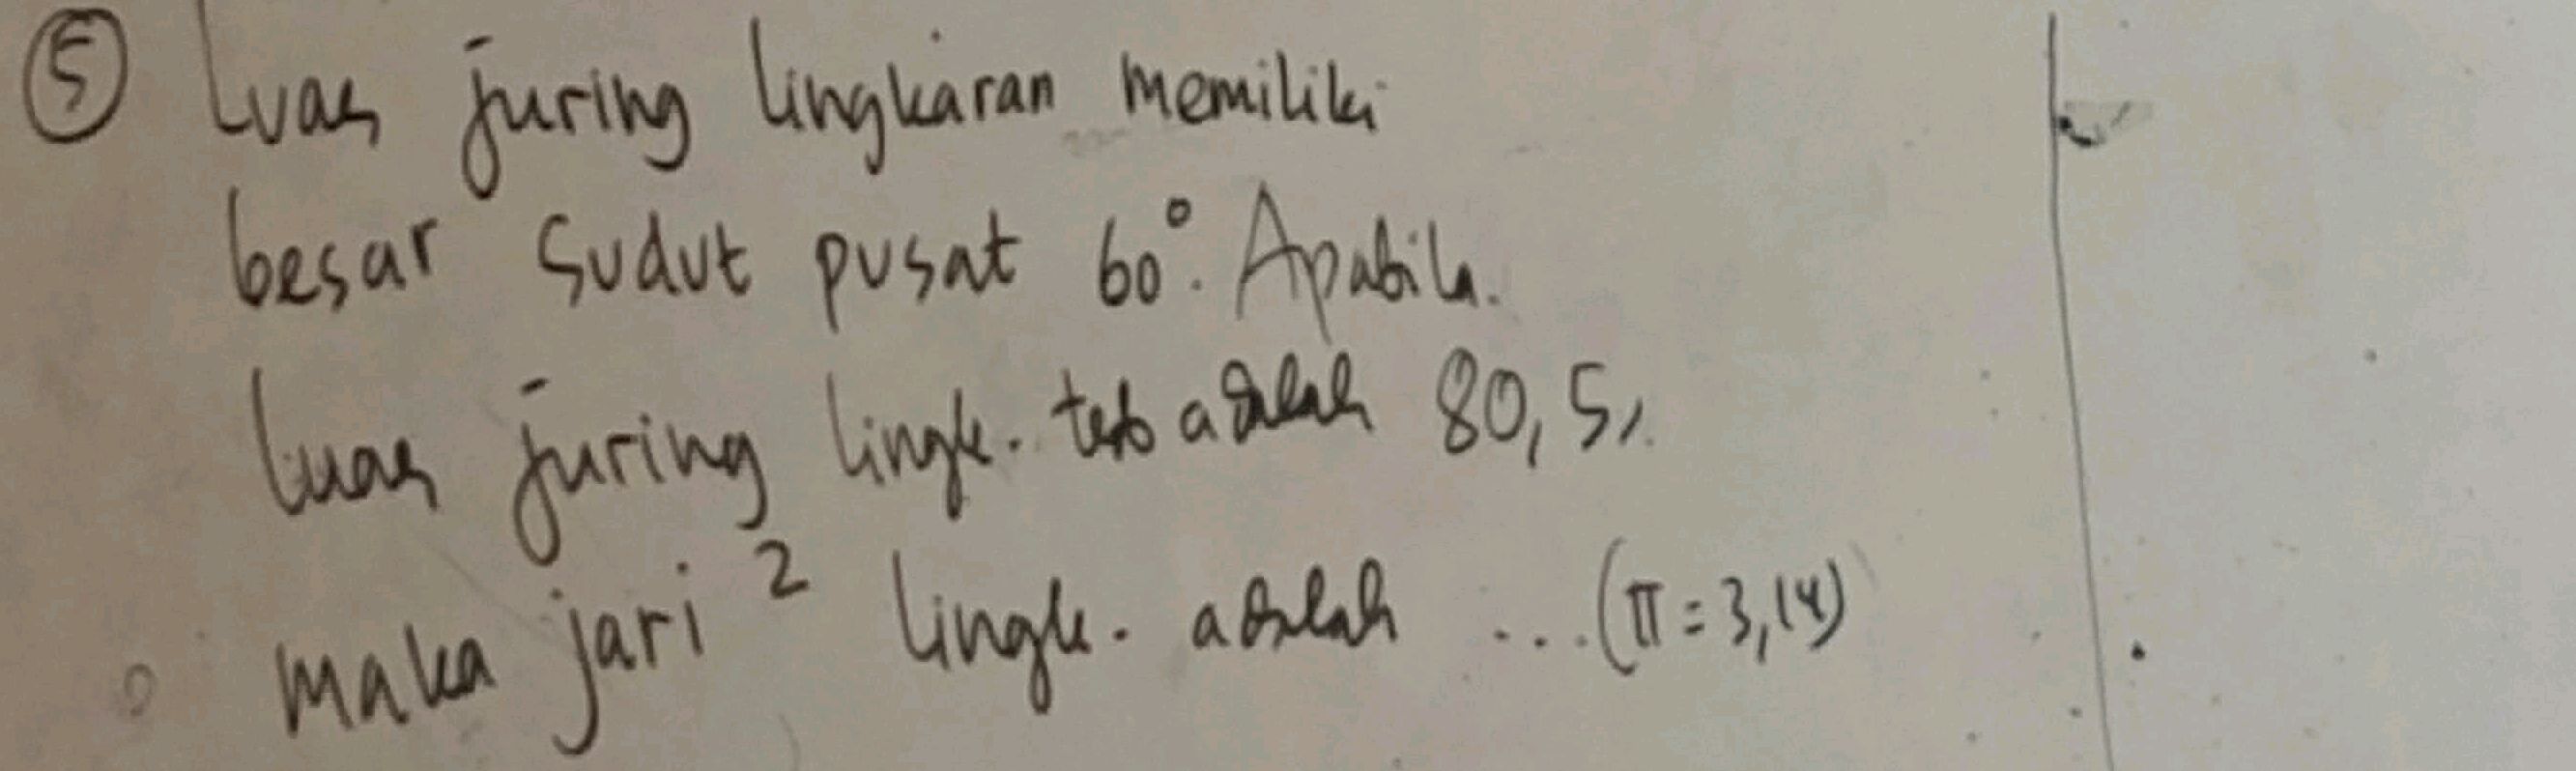 ⑤ Luas juring lingkaran memiliki
besar sudut pusat 60°. Apabila.
luas juring lingk. tsb adalah 80,5,.
maka jari² lingk. adalah ... (π = 3,14)